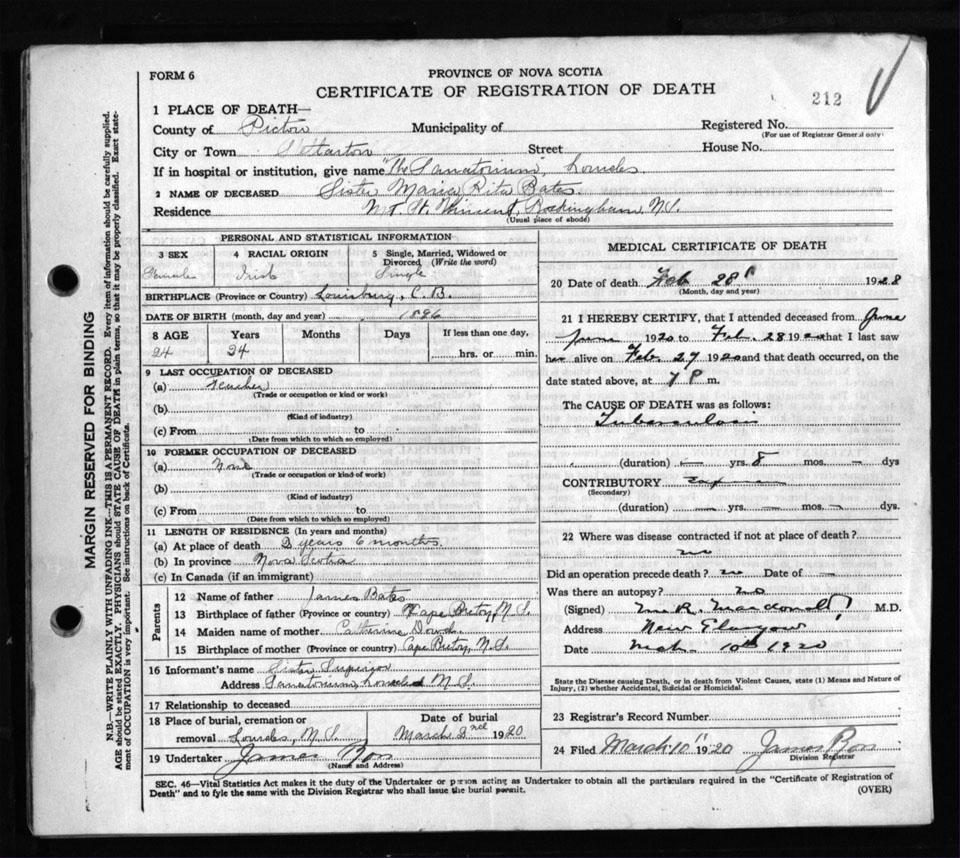 FORM 6
PROVINCE OF NOVA SCOTIA
CERTIFICATE OF REGISTRATION OF DEATH
212
1 PLACE OF DEATH—
County of Pictou Municipality of Registered No.
(For use of Registrar General only)
City or Town Street House No.
If in hospital or institution, give name "The Sanatorium", Lourdes.
2 NAME OF DECEASED Sister Maria Rita Bates.
Residence Mt. St. Vincent, Rockingham, N.S.
(Usual place of abode)
PERSONAL AND STATISTICAL INFORMATION
3 SEX 4 RACIAL ORIGIN 5 Single, Married, Widowed or Divorced (Write the word)
Female Irish Single
BIRTHPLACE (Province or Country) Louisburg, C.B.
DATE OF BIRTH (month, day and year) 1896
8 AGE Years Months Days If less than one day,
24 24 hrs. or min.
9 LAST OCCUPATION OF DECEASED
(a) Teacher
(Trade or occupation or kind or work)
(b)
(Kind of industry)
(c) From to
(Date from which to which so employed)
10 FORMER OCCUPATION OF DECEASED
(a) None
(Trade or occupation or kind of work)
(b)
(Kind of industry)
(c) From to
(Date from which to which so employed)
11 LENGTH OF RESIDENCE (In years and months)
(a) At place of death 2 years 6 months.
(b) In province Nova Scotia
(c) In Canada (if an immigrant)
Parents
12 Name of father James Bates
13 Birthplace of father (Province or country) Cape Breton, N.S.
14 Maiden name of mother Catherine
15 Birthplace of mother (Province or country) Cape Breton, N.S.
16 Informant's name Sister Superior
Address Sanatorium, Lourdes N.S.
17 Relationship to deceased
18 Place of burial, cremation or removal Lourdes, N.S.
Date of burial
March 2nd 1920
19 Undertaker James
(Name and Address)
MEDICAL CERTIFICATE OF DEATH
20 Date of death Feb 28 1928
(Month, day and year)
21 I HEREBY CERTIFY, that I attended deceased from
1920 to Feb. 28 1920 that I last saw
her alive on Feb. 27 1920 and that death occurred, on the
date stated above, at 7 P m.
The CAUSE OF DEATH was as follows:
Tuberculosis
(duration) — yrs. 8 mos. — dys
CONTRIBUTORY
(Secondary)
(duration) — yrs. — mos. — dys
22 Where was disease contracted if not at place of death?
no
Did an operation precede death? no Date of —
Was there an autopsy? no
(Signed) M.R. Macdonald M.D.
Address New Glasgow
Date Mch. 10th 1920
State the Disease causing Death, or in death from Violent Causes, state (1) Means and Nature of
Injury, (2) whether Accidental, Suicidal or Homicidal.
23 Registrar's Record Number
24 Filed March 10" 1920 James
Division Registrar
SEC. 46—Vital Statistics Act makes it the duty of the Undertaker or person acting as Undertaker to obtain all the particulars required in the "Certificate of Registration of
Death" and to fyle the same with the Division Registrar who shall issue the burial permit.
(OVER)
MARGIN RESERVED FOR BINDING
N.B.—WRITE PLAINLY WITH UNFADING INK—THIS IS A PERMANENT RECORD. Every item of information should be carefully supplied.
AGE should be stated EXACTLY. PHYSICIANS should STATE CAUSE OF DEATH in plain terms, so that it may be properly classified. Exact state-
ment of OCCUPATION is very important. See instructions on back of Certificate.